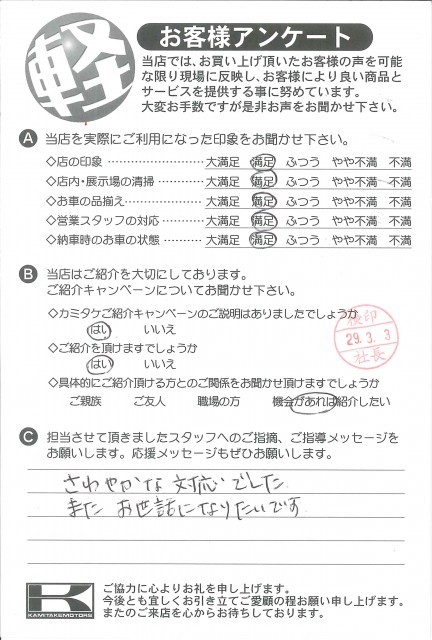 軽
お客様アンケート
当店では、お買い上げ頂いたお客様の声を可能
な限り現場に反映し、お客様により良い商品と
サービスを提供する事に努めています。
大変お手数ですが是非お声をお聞かせ下さい。
A 当店を実際にご利用になった印象をお聞かせ下さい。
◇店の印象 ………………… 大満足 満足 ふつう やや不満 不満
◇店内・展示場の清掃 ………… 大満足 満足 ふつう やや不満 不満
◇お車の品揃え ……………… 大満足 満足 ふつう やや不満 不満
◇営業スタッフの対応 ………… 大満足 満足 ふつう やや不満 不満
◇納車時のお車の状態 ………… 大満足 満足 ふつう やや不満 不満
B 当店はご紹介を大切にしております。
ご紹介キャンペーンについてお聞かせ下さい。
◇カミタケご紹介キャンペーンのご説明はありましたでしょうか
はい いいえ
◇ご紹介を頂けますでしょうか
はい いいえ
◇具体的にご紹介頂ける方とのご関係をお聞かせ頂けますでしょうか
ご親族 ご友人 職場の方 機会があれば紹介したい
検印
29.3.3
社長
C 担当させて頂きましたスタッフへのご指摘、ご指導メッセージを
お願いします。応援メッセージもぜひお願いします。
さわやかな対応でした
また お世話になりたいです
K
KAMITAKEMOTORS
ご協力に心よりお礼を申し上げます。
今後とも宜しくお引き立てご愛顧の程お願い申し上げます。
またのご来店を心からお待ちしております。